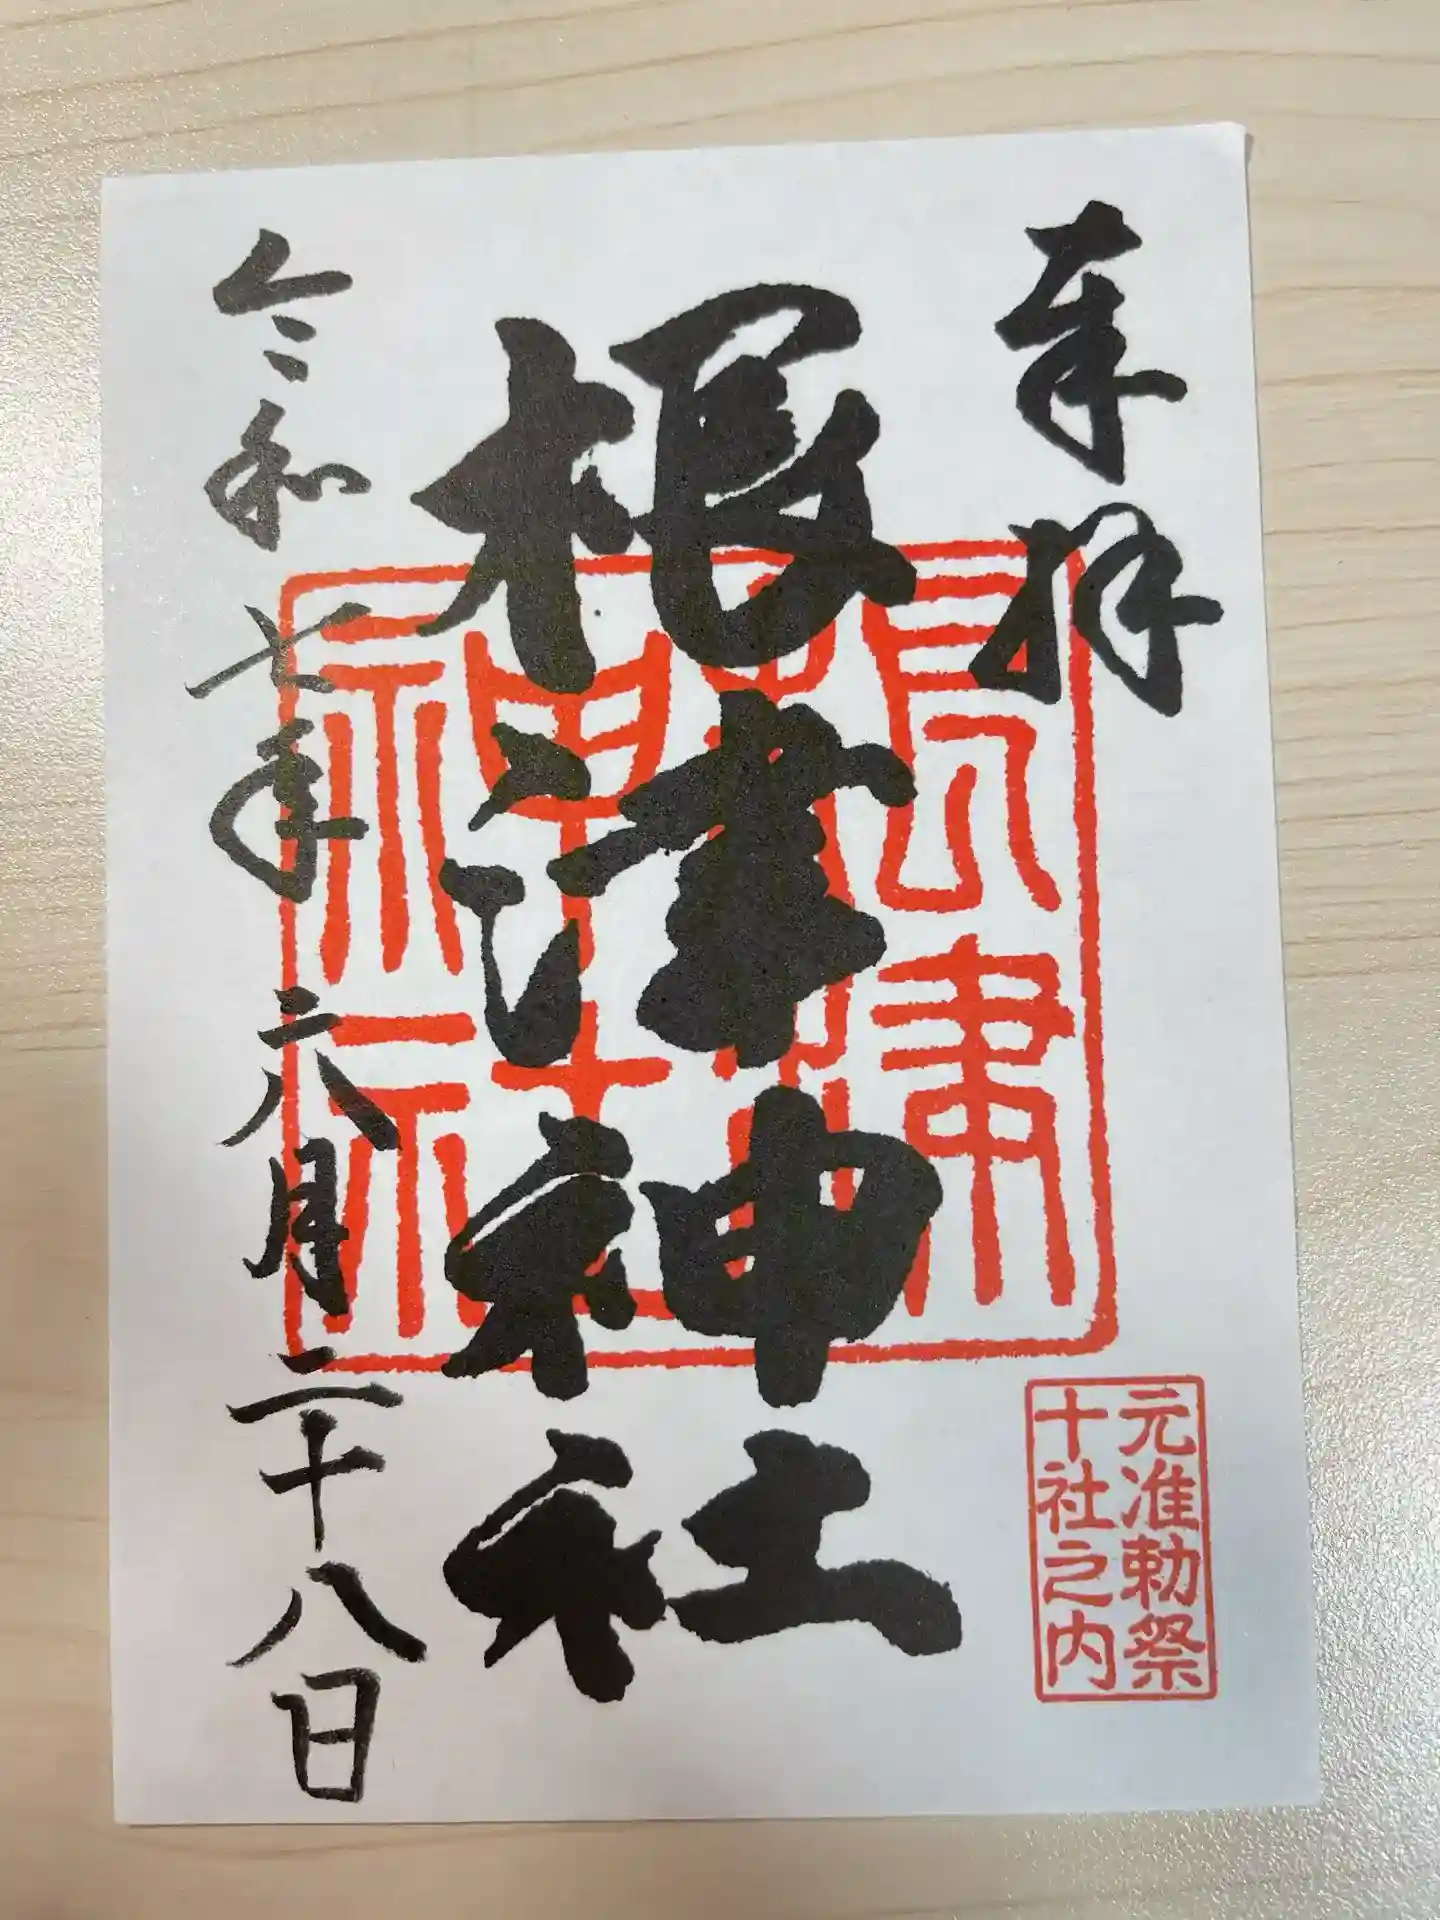 奉拝
根津神社
根津神社
元准勅祭
十社之内
令和七年六月二十八日